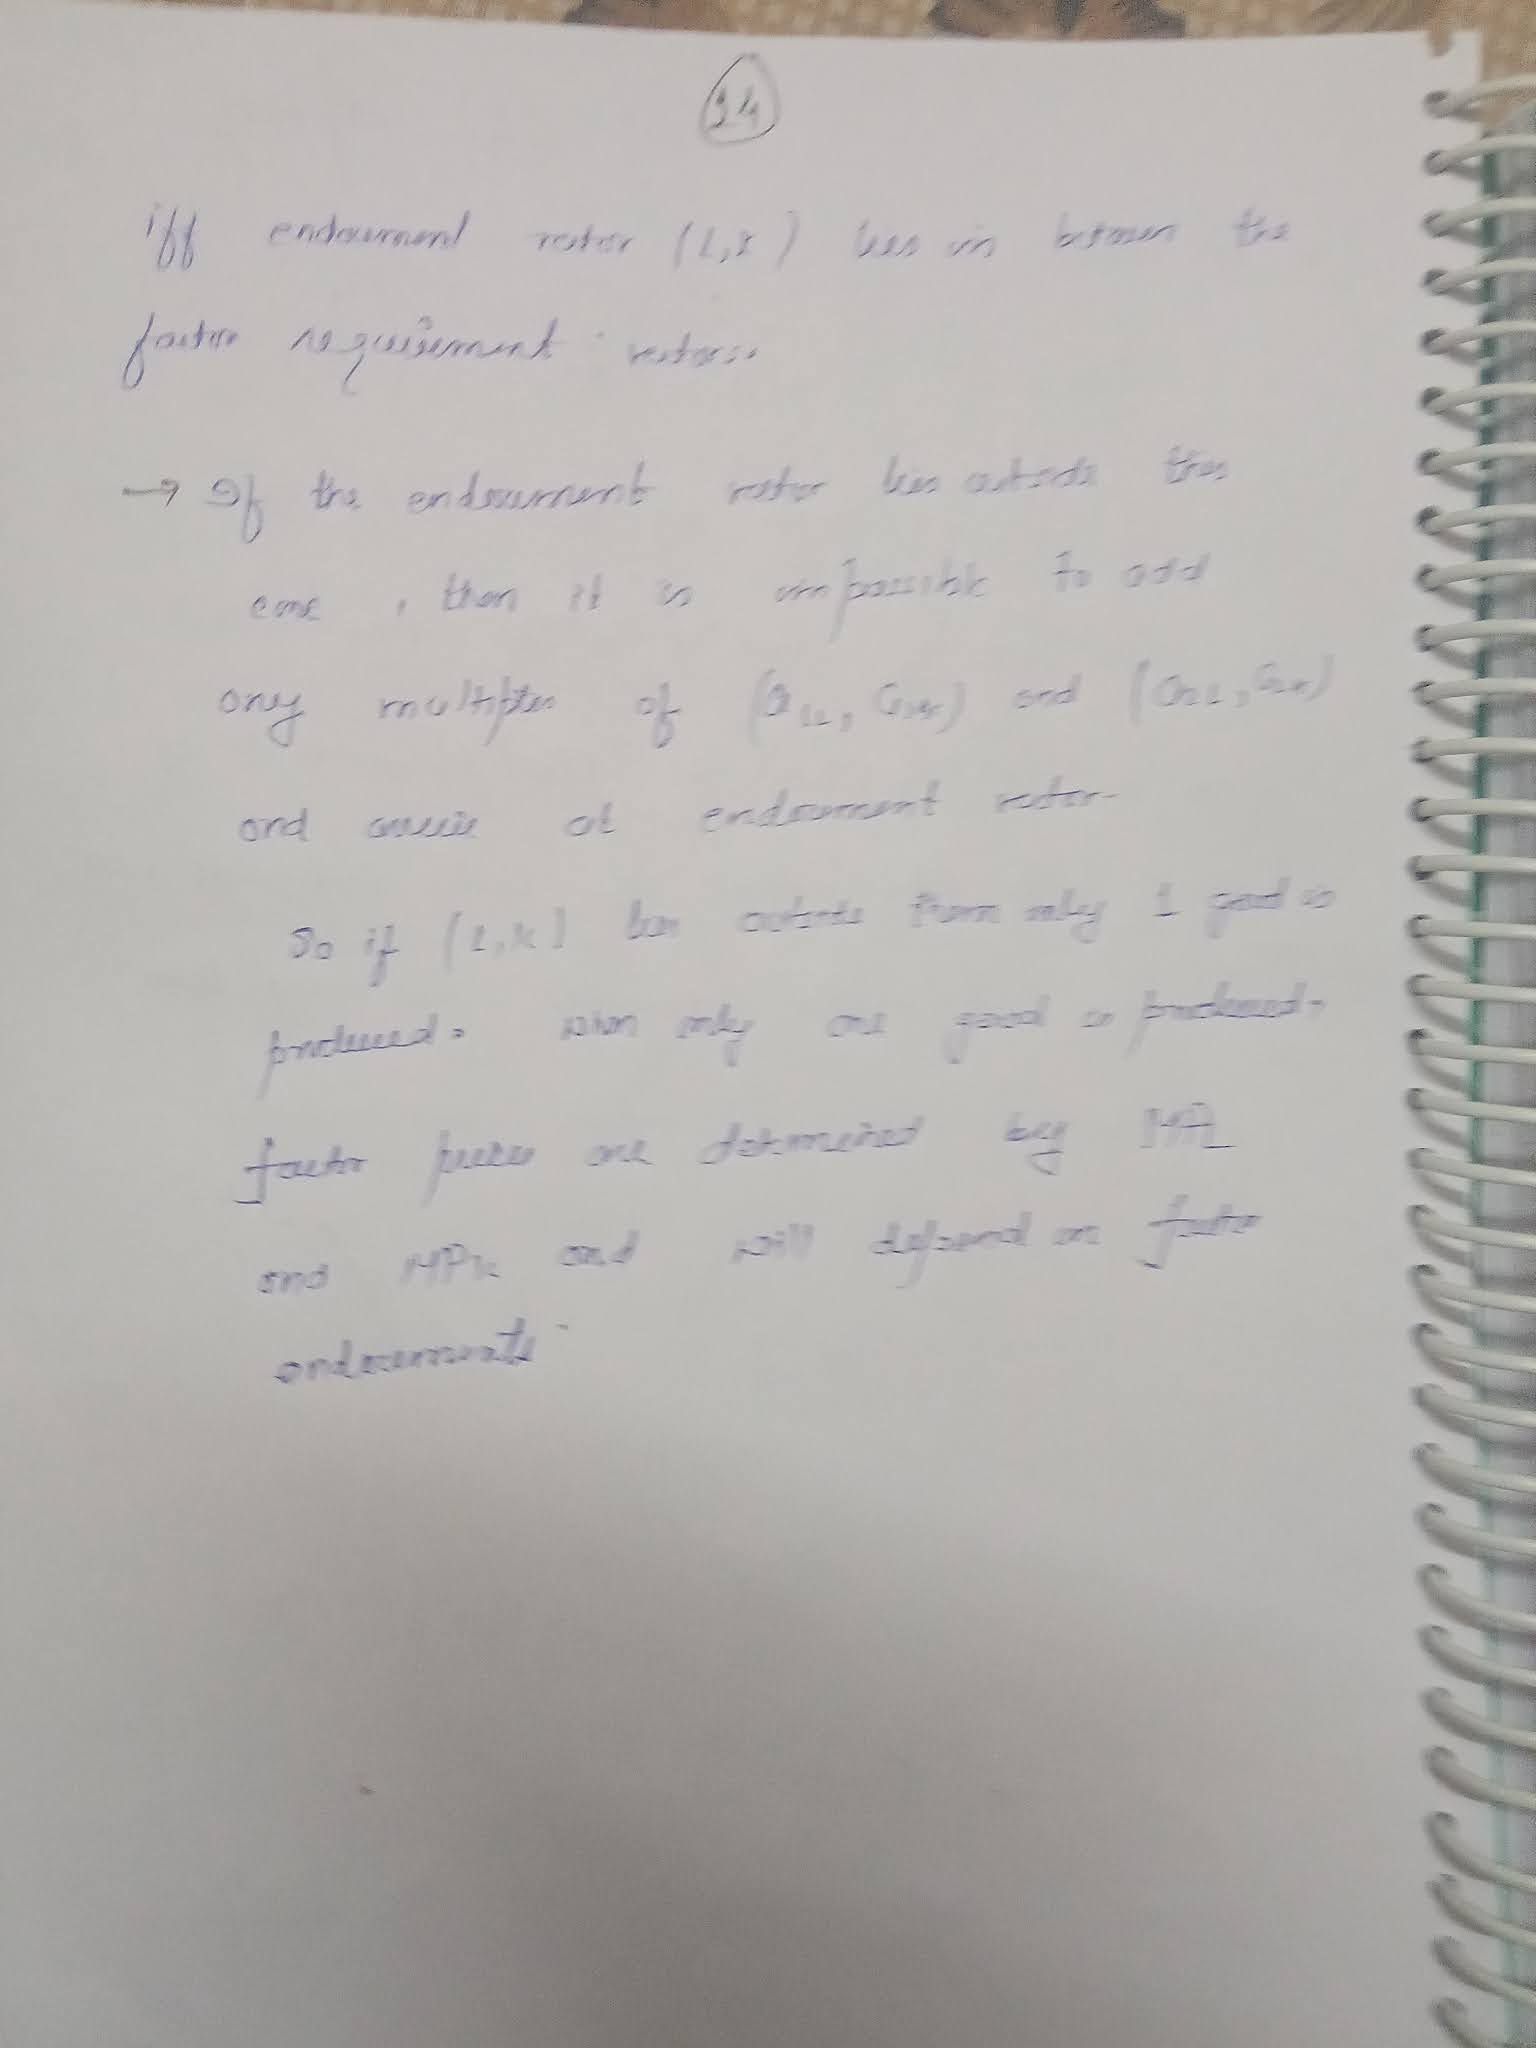 34
iff endowment vector (L,K) lies in between the
factor requirement vectors.
→ If the endowment vector lies outside this
cone, then it is impossible to add
any multiples of (a1L, a1K) and (a2L, a2K)
and arrive at endowment vector.
So if (L,K) lies outside then only 1 good is
produced. When only one good is produced,
factor prices are determined by MPL
and MPK and will depend on factor
endowments.